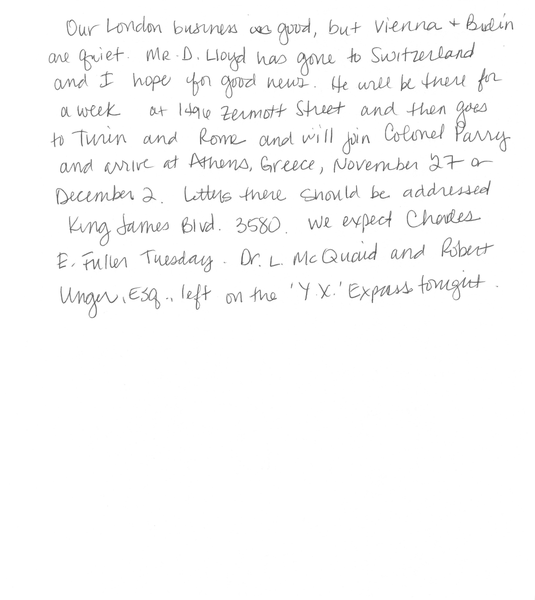 Our London business is good, but Vienna + Berlin
are quiet. Mr. D. Lloyd has gone to Switzerland
and I hope for good news. He will be there for
a week at 1496 Zermott Street and then goes
to Turin and Rome and will join Colonel Parry
and arrive at Athens, Greece, November 27 or
December 2. Letters there should be addressed
King James Blvd. 3580. We expect Charles
E. Fuller Tuesday. Dr. L. McQuaid and Robert
Unger, Esq., left on the 'Y.X.' Express tonight.